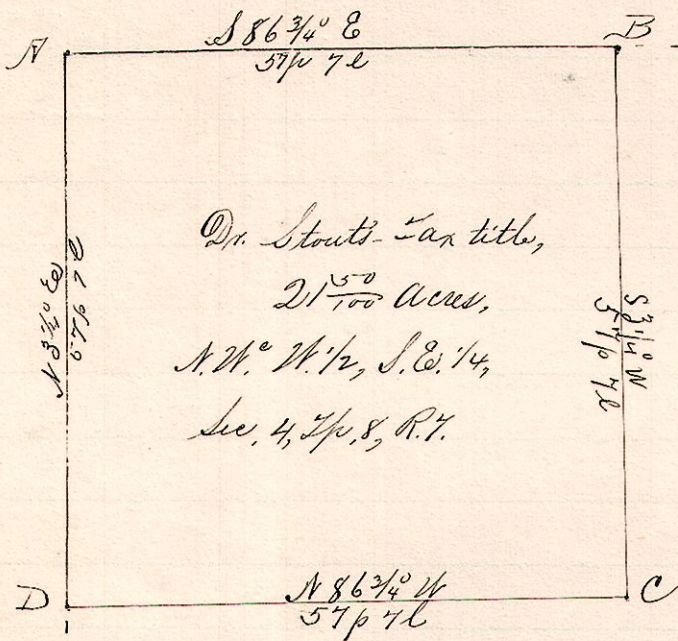 S 86 3/4° E
57p 7l
A
B
N 3 1/4° E
57p 7l
Dr. Stout's Tax title,
21 50/100 Acres,
N.W.c W.1/2, S.E.1/4,
Sec. 4, Tp. 8, R.7.
S 3 1/4° W
57p 7l
N 86 3/4° W
57p 7l
D
C